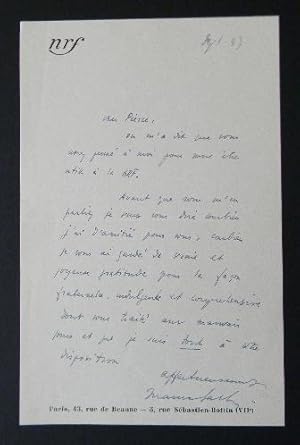 nrf
Pierre,
on m'a dit que vous
pensé à moi pour vous être
utile à la
Avant que vous m'en
parliez je veux vous dire combien
j'ai d'amitié pour vous, combien
je vous ai gardé de vraie et
joyeuse gratitude pour la façon
fraternelle, indulgente et compréhensive
dont vous traité aux mauvais
jours et que je suis tout à votre
disposition
affectueusement
Paris, 43, rue de Beaune — 5, rue Sébastien-Bottin (VIIe)